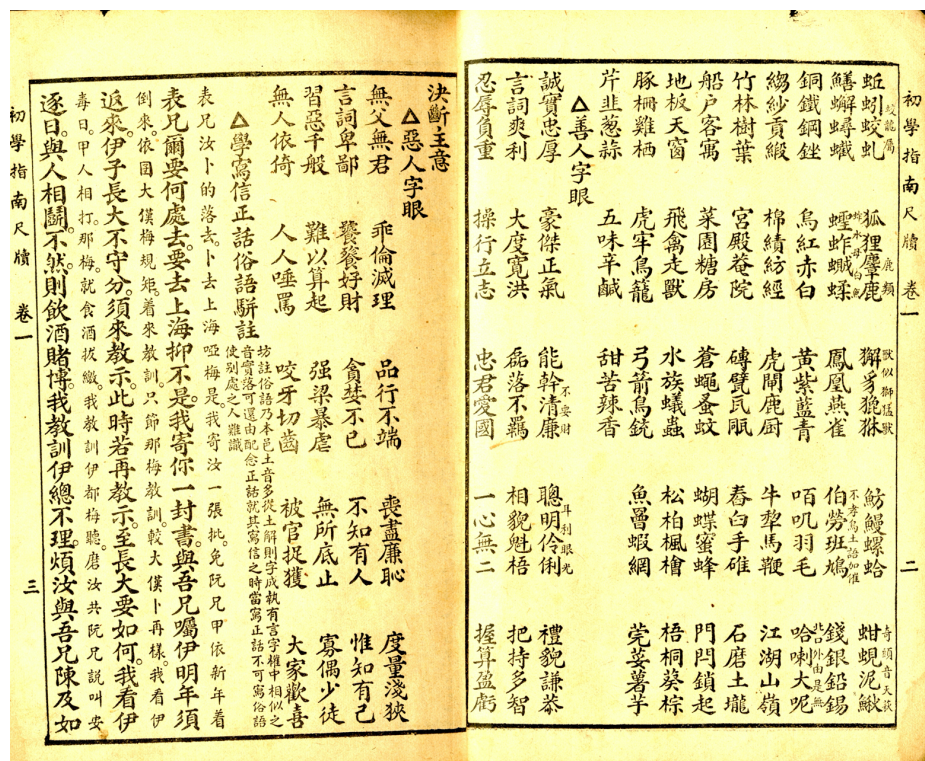 初學指南尺牘 卷一 二
蚯蚓蛟虬 狐狸麞鹿 獬豸㹸貅 魴鰻螺蛤 蚶蜆泥鰍
蛟龍屬 鹿類 獸似獅猛獸
鱔蠏蟳蠘 蟶蚱䗩蝚 鳳凰燕雀 伯勞班鳩 錢銀鉛錫
銅鐵鋼銼 烏紅赤白 黃紫藍青 咟叽羽毛 哈喇大呢
縐紗貢緞 棉績紡經 虎閘鹿厨 牛犂馬鞭 江湖山嶺
竹林樹葉 宮殿菴院 磚甓瓦𤭁 舂臼手碓 石磨土壠
船户客寓 菜園糖房 蒼蠅蚤蚊 蝴蝶蜜蜂 門閂鎖起
地板天窗 飛禽走獸 水族蟻蟲 松柏楓檜 梧桐葵棕
豚柵雞栖 虎牢鳥籠 弓箭鳥銃 魚罾蝦網 莞荽薯芋
芹韭葱蒜 五味辛鹹 甜苦辣香
△善人字眼
誠實忠厚 豪傑正氣 能幹清廉 聰明伶俐 禮貌謙恭
不妄財 斗利眼光
言詞爽利 大度寬洪 磊落不羈 相貌魁梧 把持多智
忍辱負重 操行立志 忠君愛國 一心無二 握算盈虧
決斷主意
△惡人字眼
無父無君 乖倫滅理 品行不端 喪盡廉恥 度量淺狹
言詞卑鄙 饕餮好財 貪婪不已 不知有人 惟知有己
習惡千般 難以算起 强梁暴虐 無所底止 寡偶少徒
無人依倚 人人唾罵 咬牙切齒 被官捉獲 大家歡喜
△學寫信正話俗語駢註
坊註俗語乃本邑土音多從土解則字成執有言字權中相似之
音實落可還由配念正話就其寫信之時當寫正話不可寫俗語
使别處之人難識
表兄汝卜的落去。卜去上海啞梅是我寄汝一張批。免阮兄甲依新年着
表兄爾要何處去。要去上海抑不是。我寄你一封書。與吾兄囑伊明年須
倒來。依囝大漢梅規矩。着來教訓。只節那梅教訓。較大漢卜再樣。我看伊
返來。伊子長大不守分。須來教示。此時若再教示。至長大要如何。我看伊
毒日。甲人相打。那梅。就食酒拔繳。我教訓伊都梅聽。磨汝共阮兄說叫安
逐日。與人相鬪。不然。則飲酒賭博。我教訓伊總不理。煩汝與吾兄陳及如
初學指南尺牘 卷一 三